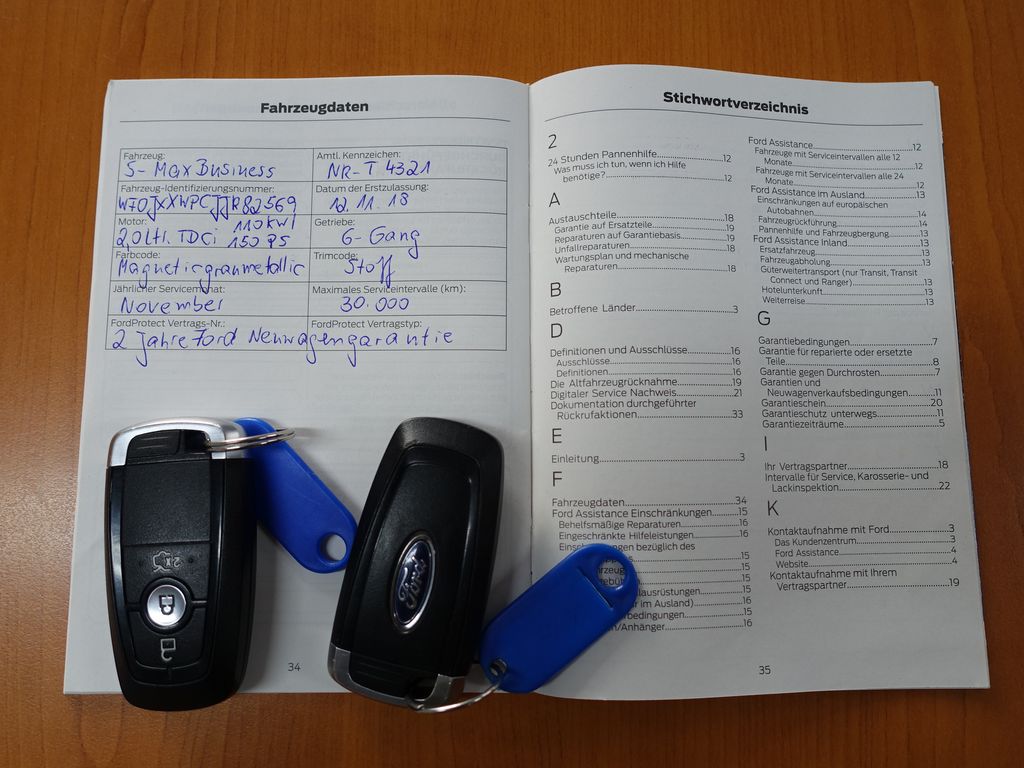 Fahrzeugdaten
Fahrzeug:
S-Max Business
Amtl. Kennzeichen:
NR-T 4321
Fahrzeug-Identifizierungsnummer:
WF0JXXWPCJJR82569
Datum der Erstzulassung:
12.11.18
Motor:
2,0ltr. TDCi
110KW/
150 PS
Getriebe:
6-Gang
Farbcode:
Magneticgraumetallic
Trimcode:
Stoff
Jährlicher Servicemonat:
November
Maximales Serviceintervalle (km):
30.000
FordProtect Vertrags-Nr.:
FordProtect Vertragstyp:
2 Jahre Ford Neuwagengarantie
34
Stichwortverzeichnis
2
24 Stunden Pannenhilfe 12
Was muss ich tun, wenn ich Hilfe
benötige? 12
A
Austauschteile 18
Garantie auf Ersatzteile 19
Reparaturen auf Garantiebasis 19
Unfallreparaturen 18
Wartungsplan und mechanische
Reparaturen 18
B
Betroffene Länder 3
D
Definitionen und Ausschlüsse 16
Ausschlüsse 16
Definitionen 16
Die Altfahrzeugrücknahme 19
Digitaler Service Nachweis 21
Dokumentation durchgeführter
Rückrufaktionen 33
E
Einleitung 3
F
Fahrzeugdaten 34
Ford Assistance Einschränkungen 15
Behelfsmäßige Reparaturen 16
Eingeschränkte Hilfeleistungen 16
bezüglich des
15
15
15
15
im Ausland) 16
15
/Anhänger 16
Ford Assistance 12
Fahrzeuge mit Serviceintervallen alle 12
Monate 12
Fahrzeuge mit Serviceintervallen alle 24
Monate 12
Ford Assistance im Ausland 13
Einschränkungen auf europäischen
Autobahnen 14
Fahrzeugrückführung 14
Pannenhilfe und Fahrzeugbergung 13
Ford Assistance Inland 13
Ersatzfahrzeug 13
Fahrzeugabholung 13
Güterweitertransport (nur Transit, Transit
Connect und Ranger) 13
Hotelunterkunft 13
Weiterreise 13
G
Garantiebedingungen 7
Garantie für reparierte oder ersetzte
Teile 8
Garantie gegen Durchrosten 7
Garantien und
Neuwagenverkaufsbedingungen 11
Garantieschein 20
Garantieschutz unterwegs 11
Garantiezeiträume 5
I
Ihr Vertragspartner 18
Intervalle für Service, Karosserie- und
Lackinspektion 22
K
Kontaktaufnahme mit Ford 3
Das Kundenzentrum 3
Ford Assistance 4
Website 4
Kontaktaufnahme mit Ihrem
Vertragspartner 19
35
2x
Ford